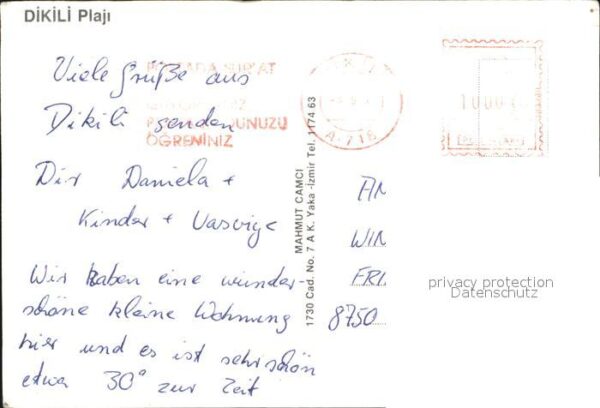 DİKİLİ Plajı
Viele Grüße aus
Dikili senden
Dir Daniela +
Kinder +
Wir haben eine wunder-
schöne kleine Wohnung
hier und es ist sehr schön
etwa 30° zur Zeit
ÖĞRENİNİZ
A-716
MAHMUT CAMCI
1730 Cad. No. 7 A K. Yaka -İzmir Tel. 1174 63
AN
WIN
FRI
8750
privacy protection
Datenschutz